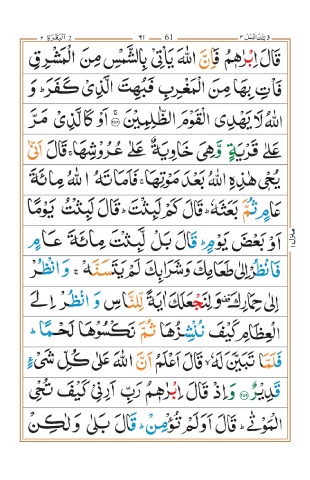 تلك الرسل ٣ ٤١ 61 البقرة 2
قَالَ اِبْرٰهٖمُ فَاِنَّ اللّٰهَ يَاْتِىْ بِالشَّمْسِ مِنَ الْمَشْرِقِ
فَاْتِ بِهَا مِنَ الْمَغْرِبِ فَبُهِتَ الَّذِىْ كَفَرَ ؕ وَ
اللّٰهُ لَا يَهْدِى الْقَوْمَ الظّٰلِمِيْنَ ۚ‏﴿۲۵۸﴾ اَوْ كَالَّذِىْ مَرَّ
عَلٰى قَرْيَةٍ وَّهِىَ خَاوِيَةٌ عَلٰى عُرُوْشِهَا ۚ قَالَ اَنّٰى
يُحْىٖ هٰذِهِ اللّٰهُ بَعْدَ مَوْتِهَا ۚ فَاَمَاتَهُ اللّٰهُ مِائَةَ
عَامٍ ثُمَّ بَعَثَهٗ ؕ قَالَ كَمْ لَبِثْتَ ؕ قَالَ لَبِثْتُ يَوْمًا
اَوْ بَعْضَ يَوْمٍ ؕ قَالَ بَلْ لَّبِثْتَ مِائَةَ عَامٍ
فَانْظُرْ اِلٰى طَعَامِكَ وَشَرَابِكَ لَمْ يَتَسَنَّهْ ۚ وَانْظُرْ
اِلٰى حِمَارِكَ وَلِنَجْعَلَكَ اٰيَةً لِّلنَّاسِ وَانْظُرْ اِلَى
الْعِظَامِ كَيْفَ نُنْشِزُهَا ثُمَّ نَكْسُوْهَا لَحْمًا ؕ
فَلَمَّا تَبَيَّنَ لَهٗ ۙ قَالَ اَعْلَمُ اَنَّ اللّٰهَ عَلٰى كُلِّ شَىْءٍ
قَدِيْرٌ ﴿۲۵۹﴾ وَاِذْ قَالَ اِبْرٰهٖمُ رَبِّ اَرِنِىْ كَيْفَ تُحْىِ
الْمَوْتٰى ؕ قَالَ اَوَلَمْ تُؤْمِنْ ؕ قَالَ بَلٰى وَلٰكِنْ
منزل ١